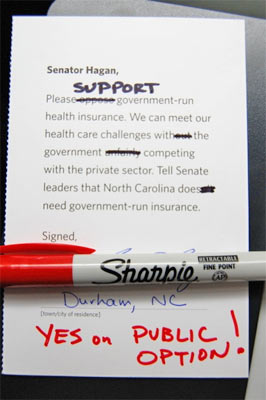 Senator Hagan,
SUPPORT
Please oppose government-run
health insurance. We can meet our
health care challenges without the
government unfairly competing
with the private sector. Tell Senate
leaders that North Carolina does
need government-run insurance.
Signed,
Sharpie
RETRACTABLE
FINE POINT
Durham, NC
[town/city of residence]
YES on PUBLIC
OPTION!